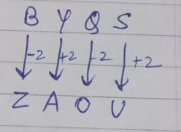 B Y Q S
-2 +2 -2 +2
Z A O U